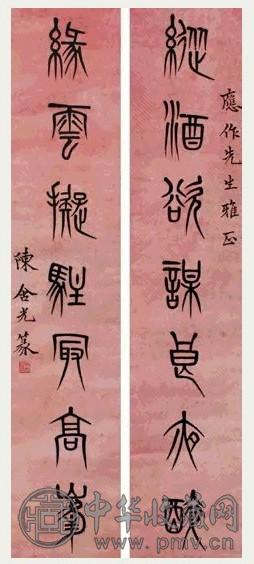 應作先生雅正
縱酒欲謀良夜醉
緣雲擬駐冣高峯
陳含光篆
中华收藏网
www.pmv.cn